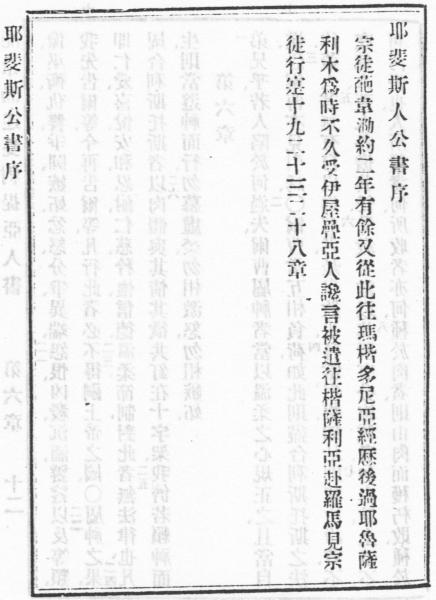 耶斐斯人公書序
宗徒葩韋泐約二年有餘又從此往瑪楷多尼亞經厯後過耶魯薩
利木爲時不久受伊屋疊亞人讒言被遣往楷薩利亞赴羅馬見宗
徒行寔十九二十三二十八章
耶斐斯公書序